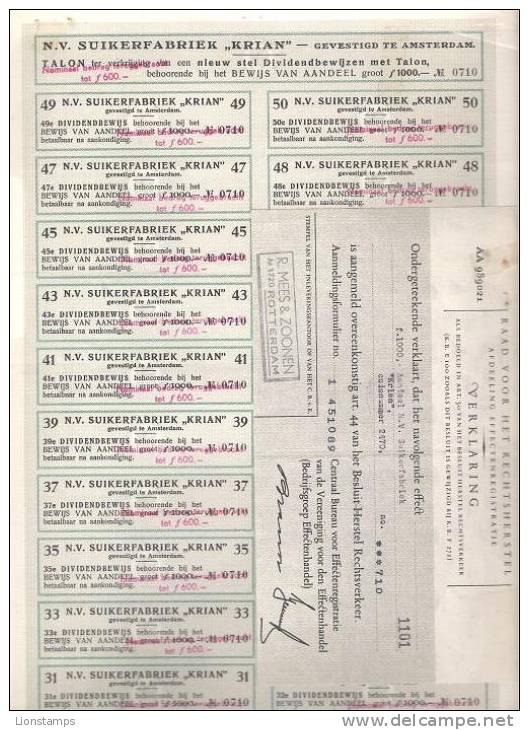 N.V. SUIKERFABRIEK „KRIAN" — GEVESTIGD TE AMSTERDAM.
TALON ter verkrijging van een nieuw stel Dividendbewijzen met Talon,
behoorende bij het BEWIJS VAN AANDEEL groot ƒ 1000.— № 0710
tot ƒ 600.—
49 N.V. SUIKERFABRIEK „KRIAN" 49
gevestigd te Amsterdam.
49e DIVIDENDBEWIJS behoorende bij het
BEWIJS VAN AANDEEL groot ƒ 1000.— № 0710
betaalbaar na aankondiging.
tot ƒ 600.—
50 N.V. SUIKERFABRIEK „KRIAN" 50
gevestigd te Amsterdam.
50e DIVIDENDBEWIJS behoorende bij het
BEWIJS VAN AANDEEL groot ƒ 1000.— № 0710
betaalbaar na aankondiging.
tot ƒ 600.—
47 N.V. SUIKERFABRIEK „KRIAN" 47
gevestigd te Amsterdam.
47e DIVIDENDBEWIJS behoorende bij het
BEWIJS VAN AANDEEL groot ƒ 1000.— № 0710
betaalbaar na aankondiging.
tot ƒ 600.—
48 N.V. SUIKERFABRIEK „KRIAN" 48
gevestigd te Amsterdam.
48e DIVIDENDBEWIJS behoorende bij het
BEWIJS VAN AANDEEL groot ƒ 1000.— № 0710
betaalbaar na aankondiging.
tot ƒ 600.—
45 N.V. SUIKERFABRIEK „KRIAN" 45
gevestigd te Amsterdam.
45e DIVIDENDBEWIJS behoorende bij het
BEWIJS VAN AANDEEL groot ƒ 1000.— № 0710
betaalbaar na aankondiging.
tot ƒ 600.—
43 N.V. SUIKERFABRIEK „KRIAN" 43
gevestigd te Amsterdam.
43e DIVIDENDBEWIJS behoorende bij het
BEWIJS VAN AANDEEL groot ƒ 1000.— № 0710
betaalbaar na aankondiging.
tot ƒ 600.—
41 N.V. SUIKERFABRIEK „KRIAN" 41
gevestigd te Amsterdam.
41e DIVIDENDBEWIJS behoorende bij het
BEWIJS VAN AANDEEL groot ƒ 1000.— № 0710
betaalbaar na aankondiging.
tot ƒ 600.—
39 N.V. SUIKERFABRIEK „KRIAN" 39
gevestigd te Amsterdam.
39e DIVIDENDBEWIJS behoorende bij het
BEWIJS VAN AANDEEL groot ƒ 1000.— № 0710
betaalbaar na aankondiging.
tot ƒ 600.—
37 N.V. SUIKERFABRIEK „KRIAN" 37
gevestigd te Amsterdam.
37e DIVIDENDBEWIJS behoorende bij het
BEWIJS VAN AANDEEL groot ƒ 1000.— № 0710
betaalbaar na aankondiging.
tot ƒ 600.—
35 N.V. SUIKERFABRIEK „KRIAN" 35
gevestigd te Amsterdam.
35e DIVIDENDBEWIJS behoorende bij het
BEWIJS VAN AANDEEL groot ƒ 1000.— № 0710
betaalbaar na aankondiging.
tot ƒ 600.—
33 N.V. SUIKERFABRIEK „KRIAN" 33
gevestigd te Amsterdam.
33e DIVIDENDBEWIJS behoorende bij het
BEWIJS VAN AANDEEL groot ƒ 1000.— № 0710
betaalbaar na aankondiging.
tot ƒ 600.—
31 N.V. SUIKERFABRIEK „KRIAN" 31
gevestigd te Amsterdam.
31e DIVIDENDBEWIJS behoorende bij het
BEWIJS VAN AANDEEL groot ƒ 1000.— № 0710
32e DIVIDENDBEWIJS behoorende bij het
BEWIJS VAN AANDEEL groot ƒ 1000.— № 0710
AA 989021
RAAD VOOR HET RECHTSHERSTEL
AFDEELING EFFECTENREGISTRATIE
VERKLARING
ALS BEDOELD IN ART. 50 VAN HET BESLUIT HERSTEL RECHTSVERKEER
(K.B. E 100 ZOOALS DIT BESLUIT IS GEWIJZIGD BIJ K.B. F 272)
Ondergeteekende verklaart, dat het navolgende effect
f.1000, Aandeel N.V. Suikerfabriek
"Krian",
no. ***710
1101
is aangemeld overeenkomstig art. 44 van het Besluit Herstel Rechtsverkeer.
Aanmeldingsformulier no. 1 451089
Centraal Bureau voor Effectenregistratie
van de Vereeniging voor den Effectenhandel
(Bedrijfsgroep Effectenhandel)
STEMPEL VAN HET INLEVERINGSKANTOOR OF VAN HET C.B.v.E.
R. MEES & ZOONEN
A 1720 ROTTERDAM
Lionstamps
delcampe.net